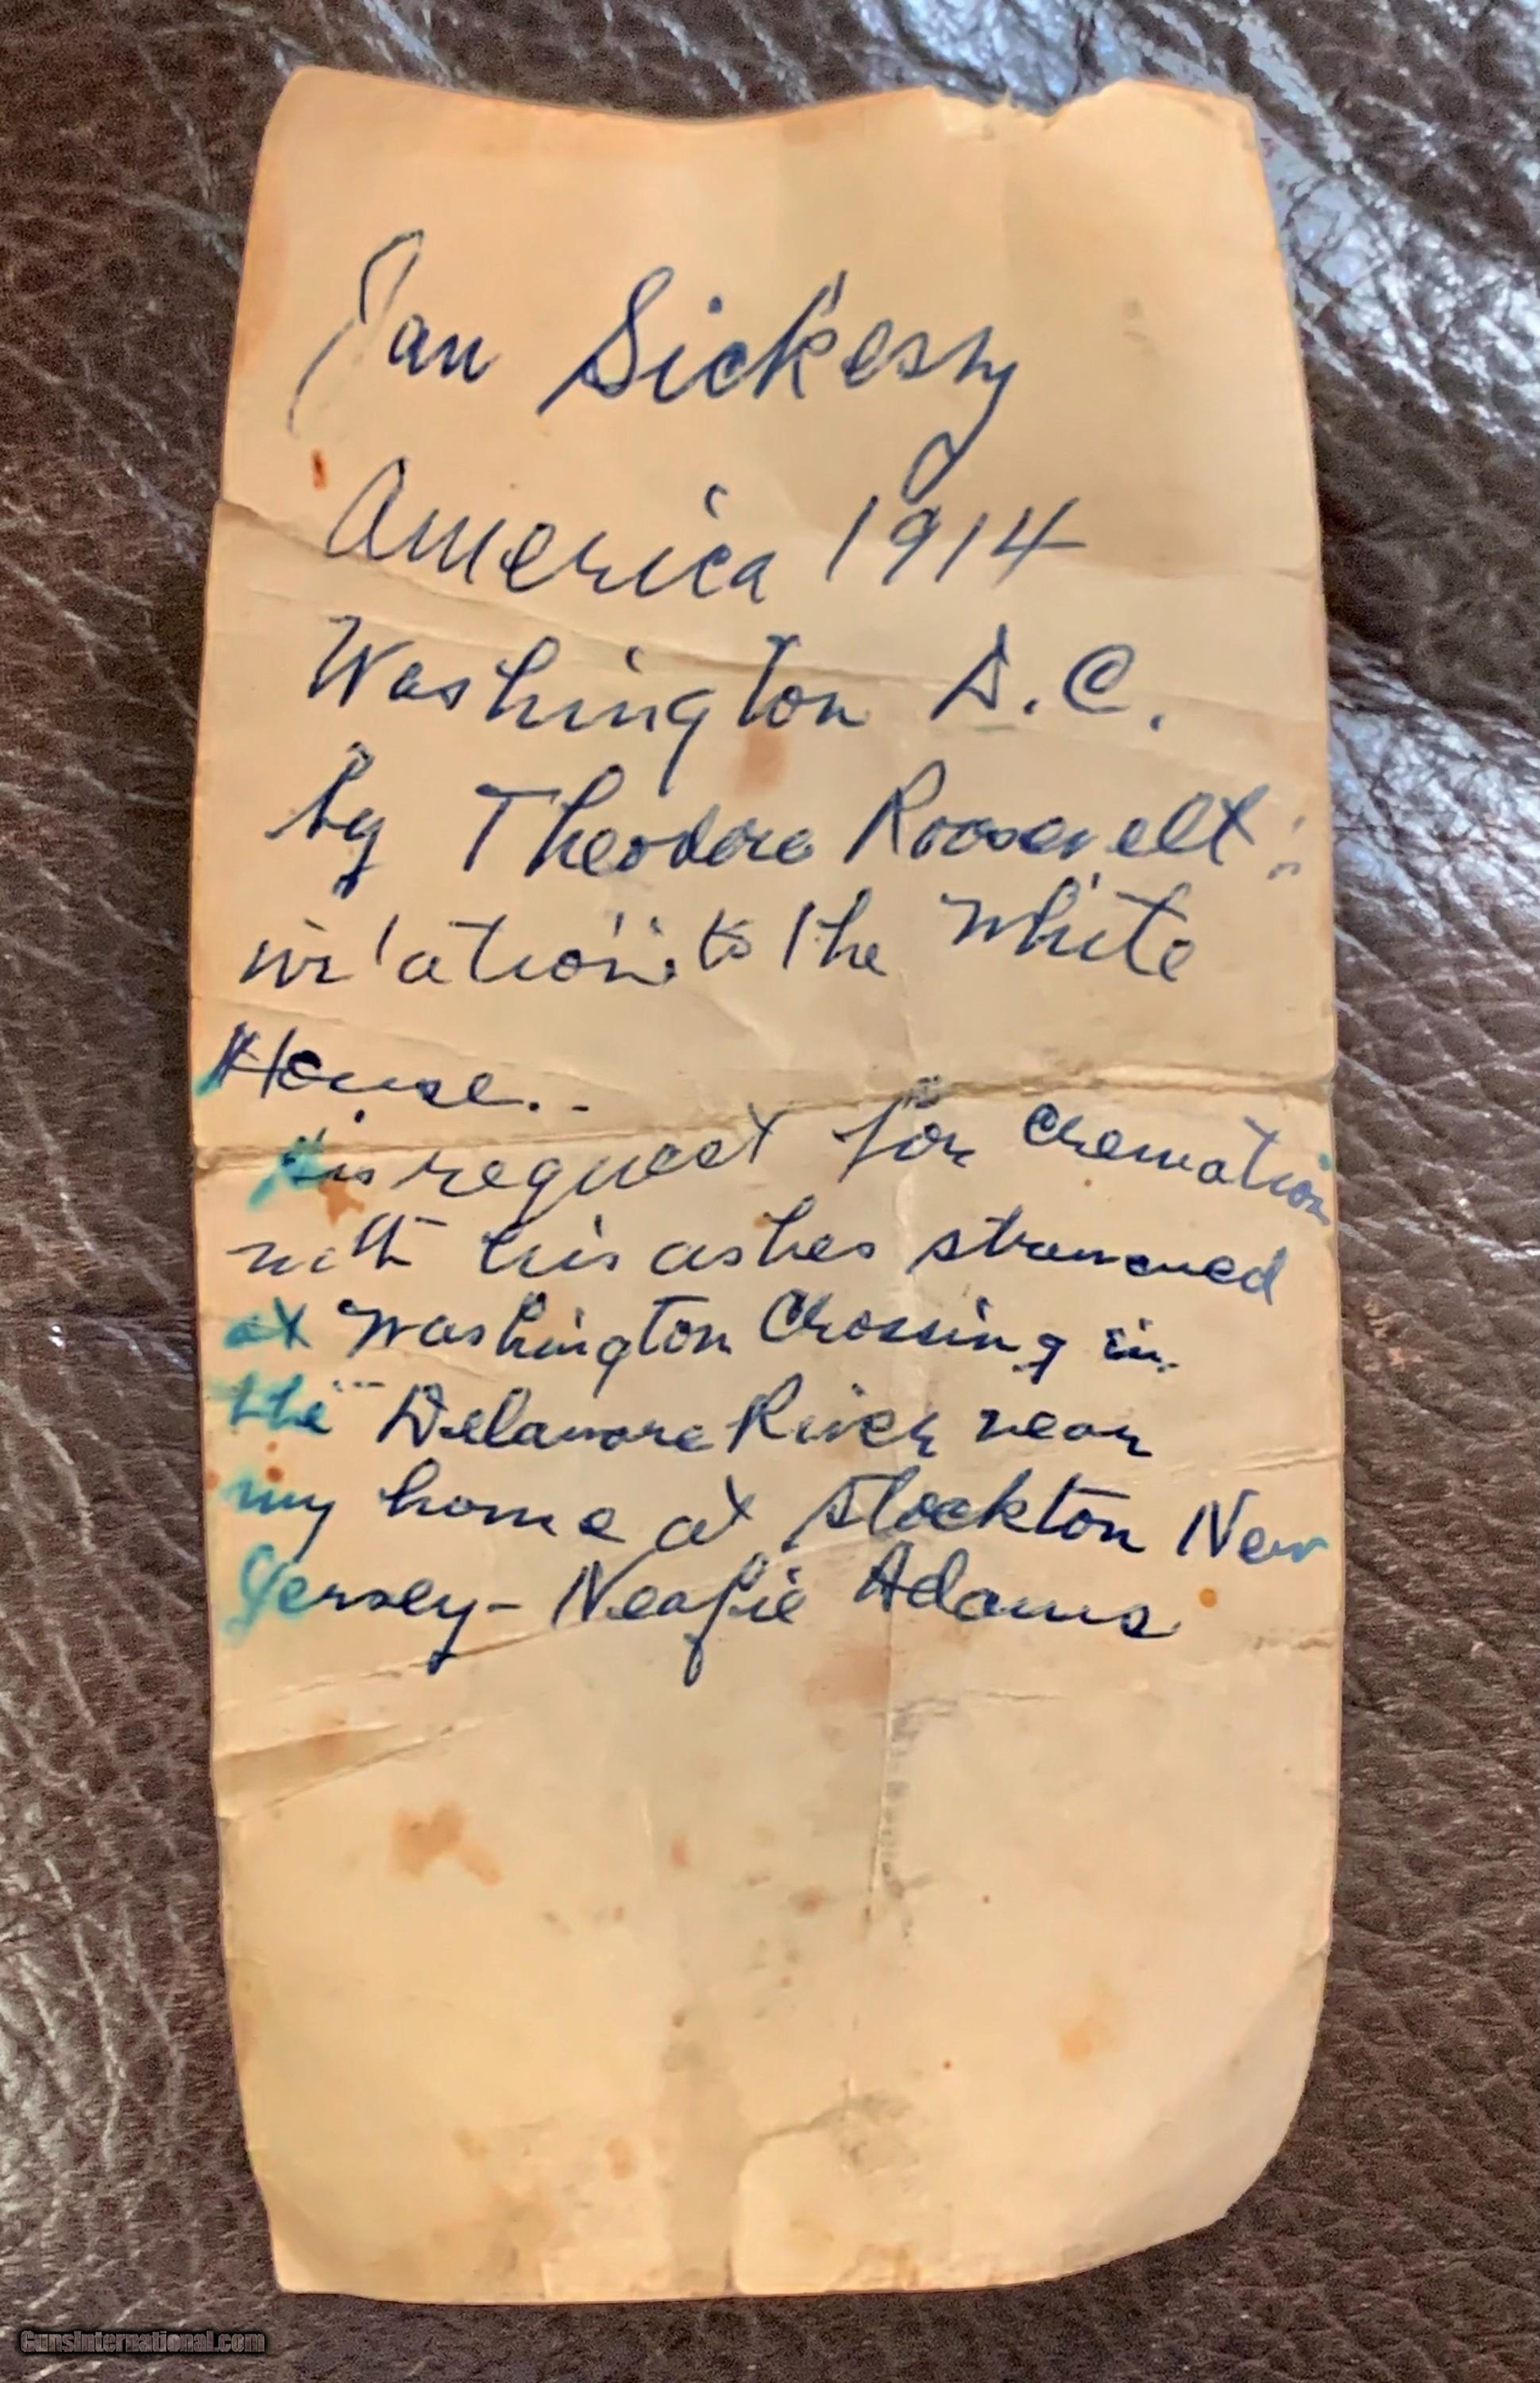 Jan Sickesy
America 1914
Washington D.C.
by Theodore Roosevelt
to the White
House..
His request for cremation
with his ashes
at Washington Crossing in
the Delaware River near
my home at Stockton New
Jersey - Neafie Adams
GunsInternational.com